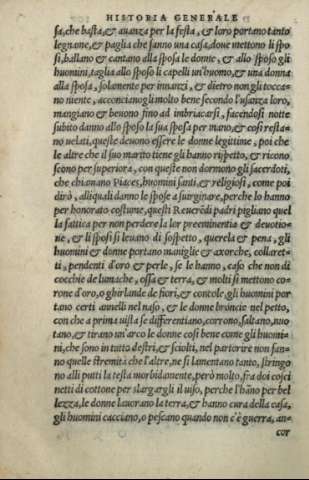 HISTORIA GENERALE
sa, che basta, & auanza per la festa, & loro portano tanto
legname, & paglia che fanno una casa, doue mettono li spo
si, ballano & cantano alla sposa le donne, & allo sposo gli
huomini, taglia allo sposo li capelli un'huomo, & una donna
alla sposa, solamente per innanzi, & dietro non gli tocca
no niente, acconcianogli molto bene secondo l'usanza loro,
mangiano & beuono fino ad imbriacarsi, facendosi notte
subito danno allo sposo la sua sposa per mano, & cosi resta
no uelati, queste deuono essere le donne legittime, poi che
le altre che il suo marito tiene gli hanno rispetto, & ricono
scono per superiora, con queste non dormono gli sacerdoti,
che chiamano Piaces, huomini santi, & religiosi, come poi
dirò, alliquali danno le spose a suirginare, perche lo hanno
per honorato costume, questi Reuerēdi padri pigliano quel
la fattica per non perdere la lor preeminentia & deuotio-
ne, & li sposi si leuano di sospetto, querela & pena, gli
huomini & donne portano maniglie & axorche, collaret-
ti, pendenti d'oro & perle, se le hanno, caso che non di
cocchie de lumache, ossa & terra, & molti si mettono co-
rone d'oro, o ghirlande de fiori, & contole. gli huomini por
tano certi annelli nel naso, & le donne broncie nel petto,
con che a prima uista se differentiano, corrono, saltano, nuo
tano, & tirano un'arco le donne cosi bene come gli huomi-
ni, che sono in tutto destri, & sciolti, nel partorire non fan-
no quelle stremità che l'altre, ne si lamentano tanto, stringo
no alli putti la testa morbidamente, però molto, fra doi cosci
netti di cottone per slargargli il uiso, perche l'hāno per bel
lezza, le donne lauorano la terra, & hanno cura della casa,
gli huomini cacciano, o pescano quando non c'è guerra, an-
cor